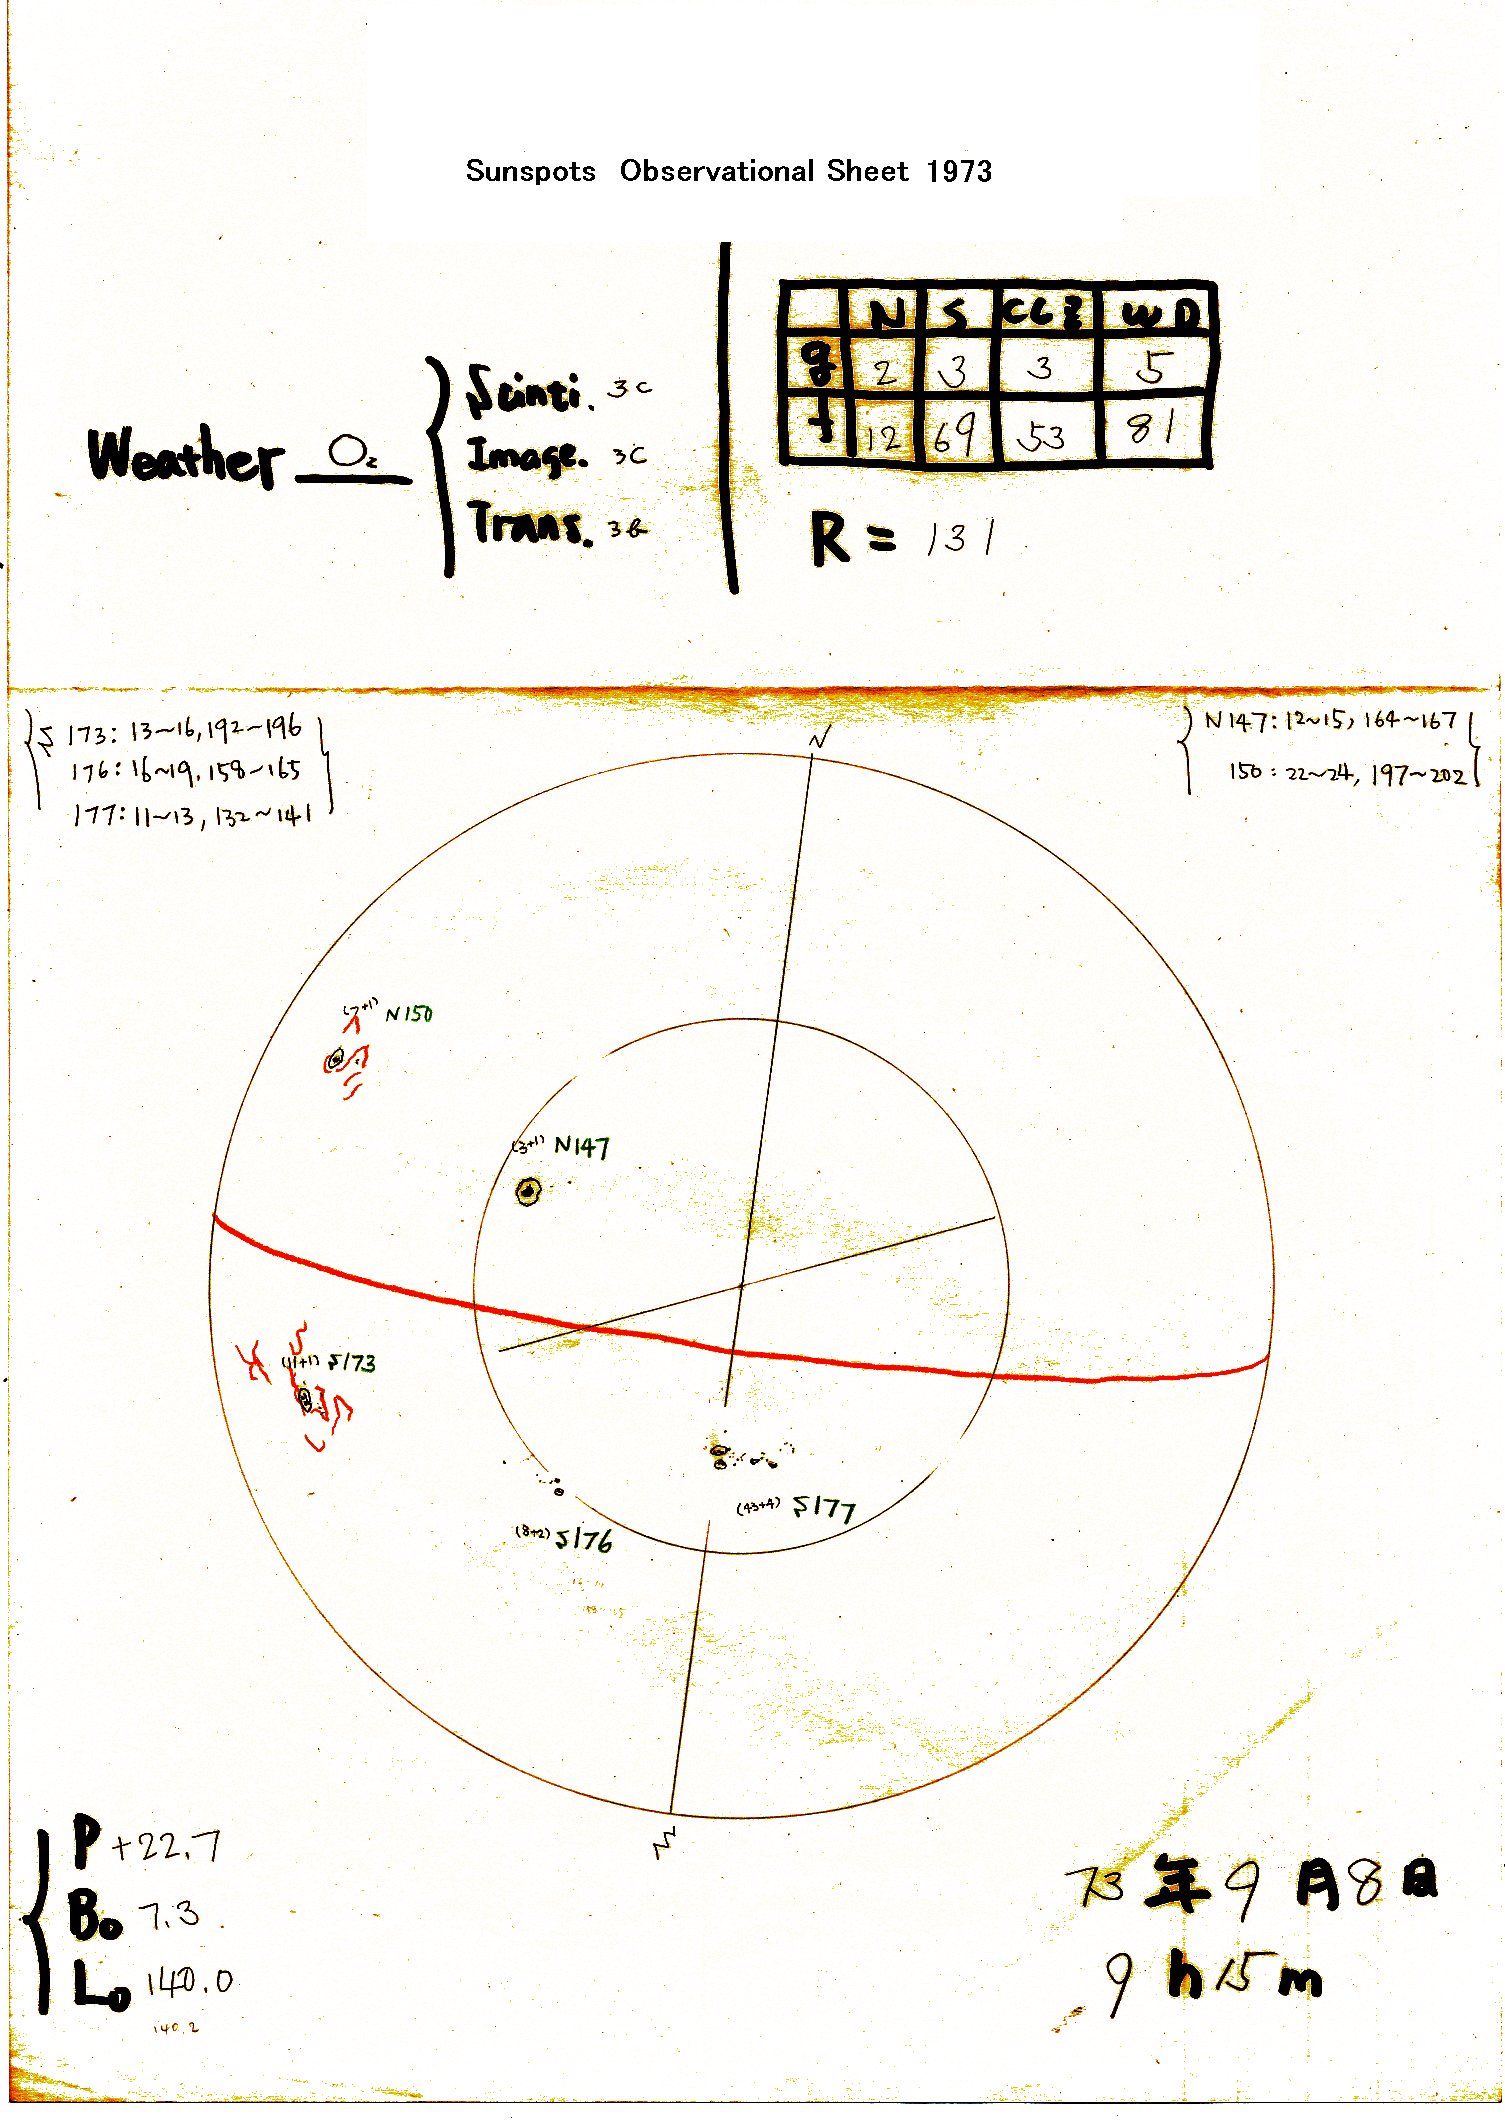 Sunspots Observational Sheet 1973
Weather O₂
Scinti. 3C
Image. 3C
Trans. 3B
N S CLZ WD
g 2 3 3 5
f 12 69 53 81
R = 131
S 173: 13~16, 192~196
176: 16~19, 158~165
177: 11~13, 132~141
N147: 12~15, 164~167
150: 22~24, 197~202
N
(7+1) N150
(3+1) N147
(41+1) S173
(43+4) S177
(8+2) S176
S
P +22.7
B₀ 7.3
L₀ 140.0
140.2
73年9月8日
9h15m